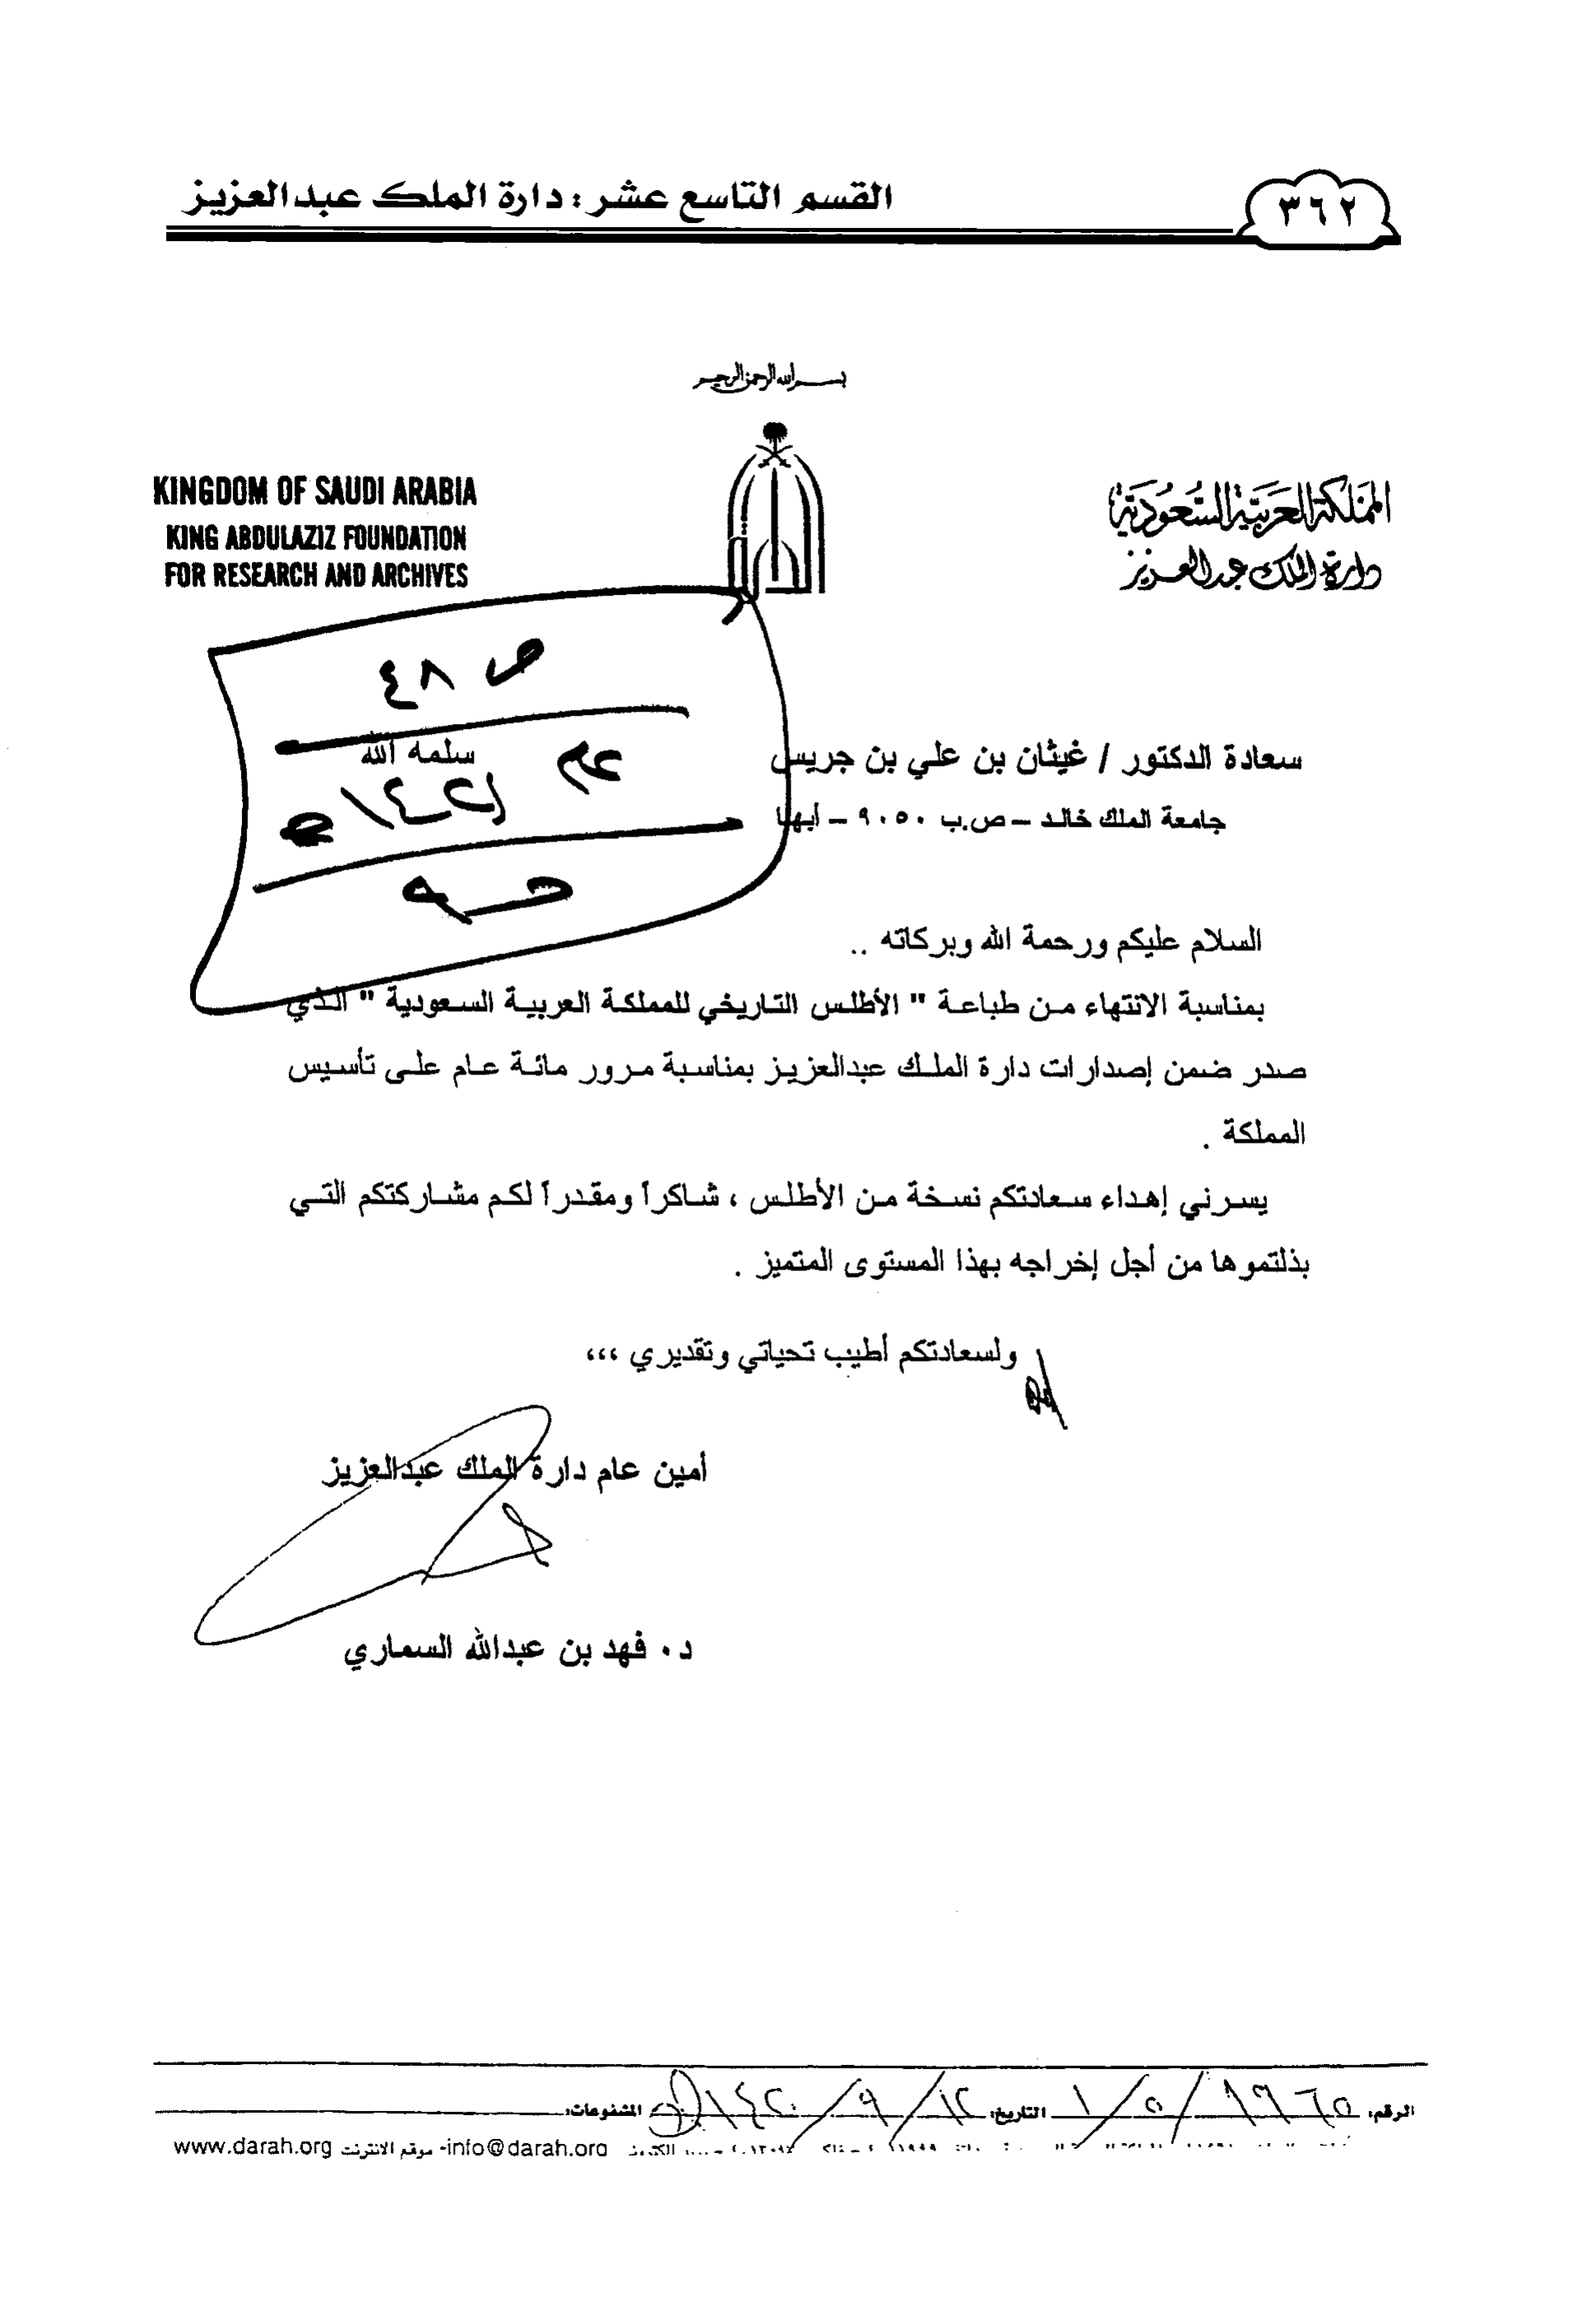 القسم التاسع عشر : دارة الملك عبدالعزيز
٣٦٢
بسم الله الرحمن الرحيم
KINGDOM OF SAUDI ARABIA
KING ABDULAZIZ FOUNDATION
FOR RESEARCH AND ARCHIVES
المملكة العربية السعودية
دارة الملك عبدالعزيز
ص ٤٨
سعادة الدكتور / غيثان بن علي بن جريس
سلمه الله
جامعة الملك خالد – ص.ب ٩٠٥٠ – أبها
السلام عليكم ورحمة الله وبركاته ..
بمناسبة الانتهاء من طباعة " الأطلس التاريخي للمملكة العربية السعودية " الذي
صدر ضمن إصدارات دارة الملك عبدالعزيز بمناسبة مرور مائة عام على تأسيس
المملكة .
يسرني إهداء سعادتكم نسخة من الأطلس ، شاكراً ومقدراً لكم مشاركتكم التي
بذلتموها من أجل إخراجه بهذا المستوى المتميز .
ولسعادتكم أطيب تحياتي وتقديري ،،،
أمين عام دارة الملك عبدالعزيز
د . فهد بن عبدالله السماري
الرقم: التاريخ: المشفوعات:
info@darah.org- موقع الانترنت www.darah.org